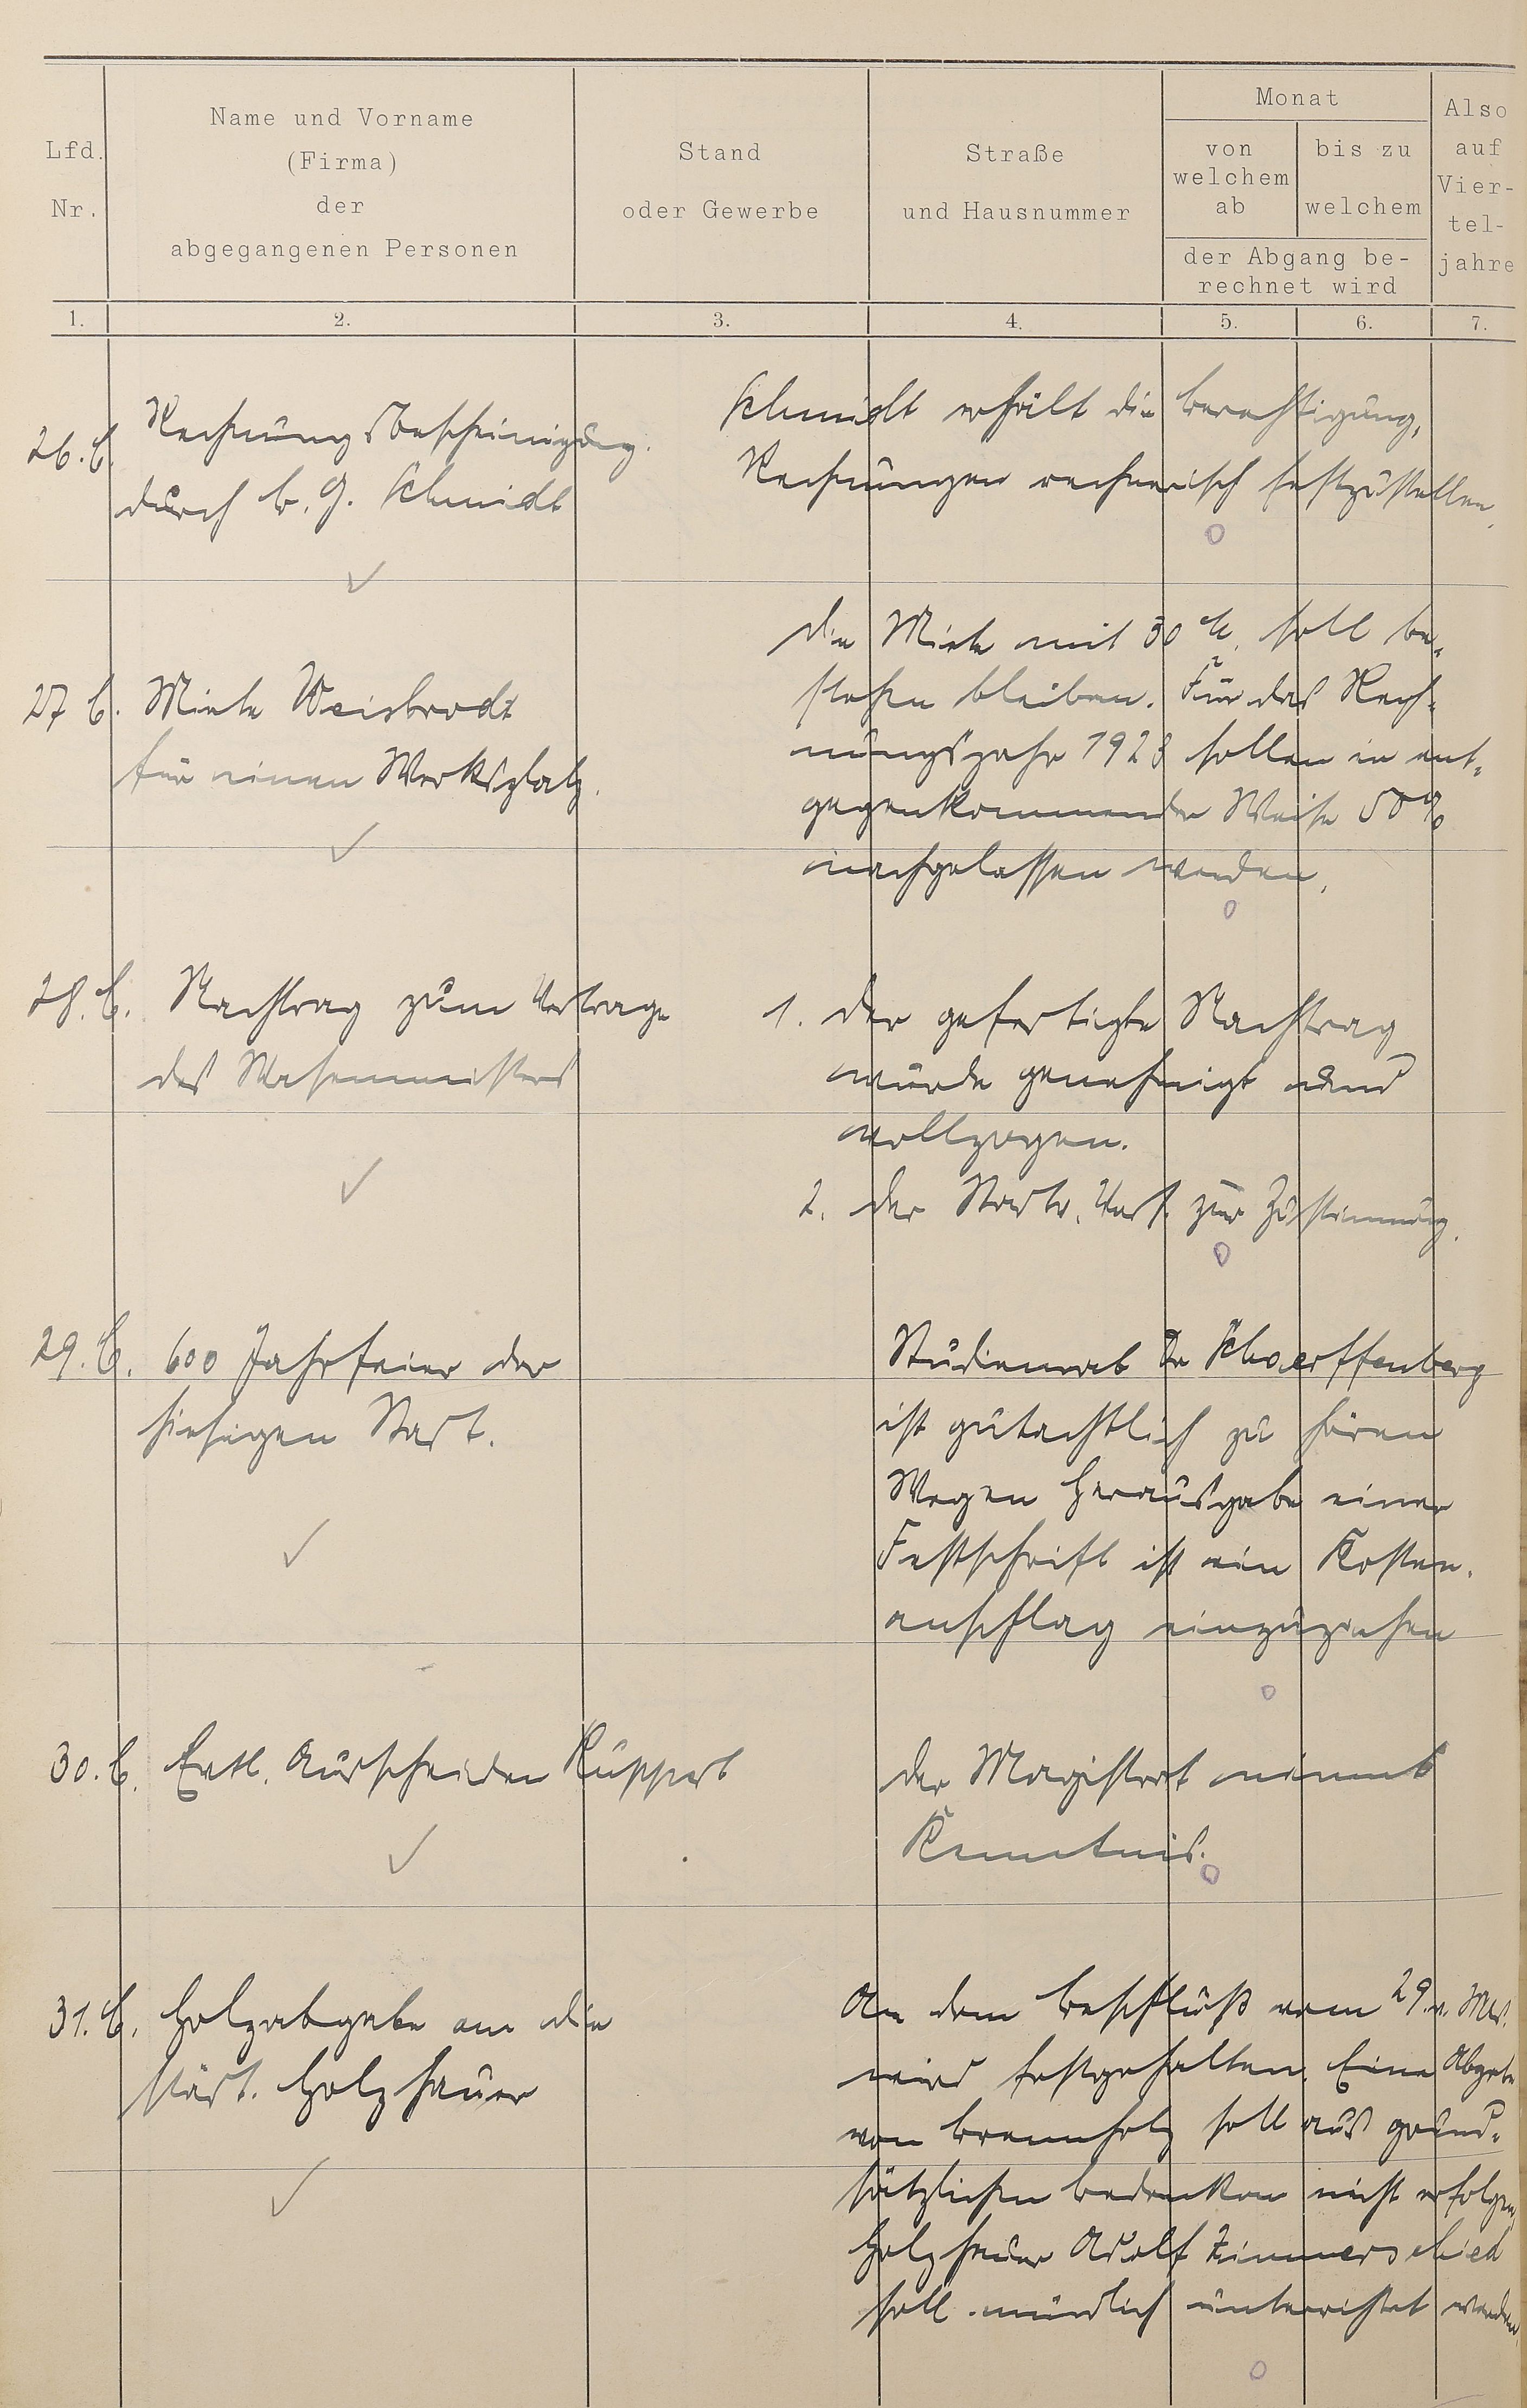 Lfd. Nr.
Name und Vorname
(Firma)
der
abgegangenen Personen
Stand
oder Gewerbe
Straße
und Hausnummer
Monat
von
welchem
ab
bis zu
welchem
der Abgang be-
rechnet wird
Also
auf
Vier-
tel-
jahre
1. 2. 3. 4. 5. 6. 7.
26. C. Rechnungsbescheinigung.
durch b. G. Schmidt
Schmidt erhält die Berechtigung,
Rechnungen rechnerisch festzustellen.
27 C. Miete Weisbrodt
für einen Werksplatz.
Die Miete mit 30 M. soll be-
stehen bleiben. Für das Rech-
nungsjahr 1928 sollen in ent-
gegenkommender Weise 50%
nachgelassen werden.
28. C. Nachtrag zum Vertrage
des Wasenmeisters
1. Der gefertigte Nachtrag
wurde genehmigt und
vollzogen.
2. Der Stadtv. Vers. zur Zustimmung.
29. C. 600 Jahrfeier der
hiesigen Stadt.
Studienrat Dr Schaerffenberg
ist gutachtlich zu hören
Wegen Herausgabe einer
Festschrift ist ein Kosten-
anschlag einzuziehen
30. C. Ausscheiden Ruppert
Der Magistrat nimmt
Kenntnis.
31. C. Holzabgabe an die
städt. Holzhauer
An dem Beschluß vom 29. v. Mts.
wird festgehalten. Eine Abgabe
von Brennholz soll aus grund-
sätzlichen Bedenken nicht erfolgen,
Holzhauer Adolf Zimmerschied
soll mündlich unterrichtet werden.